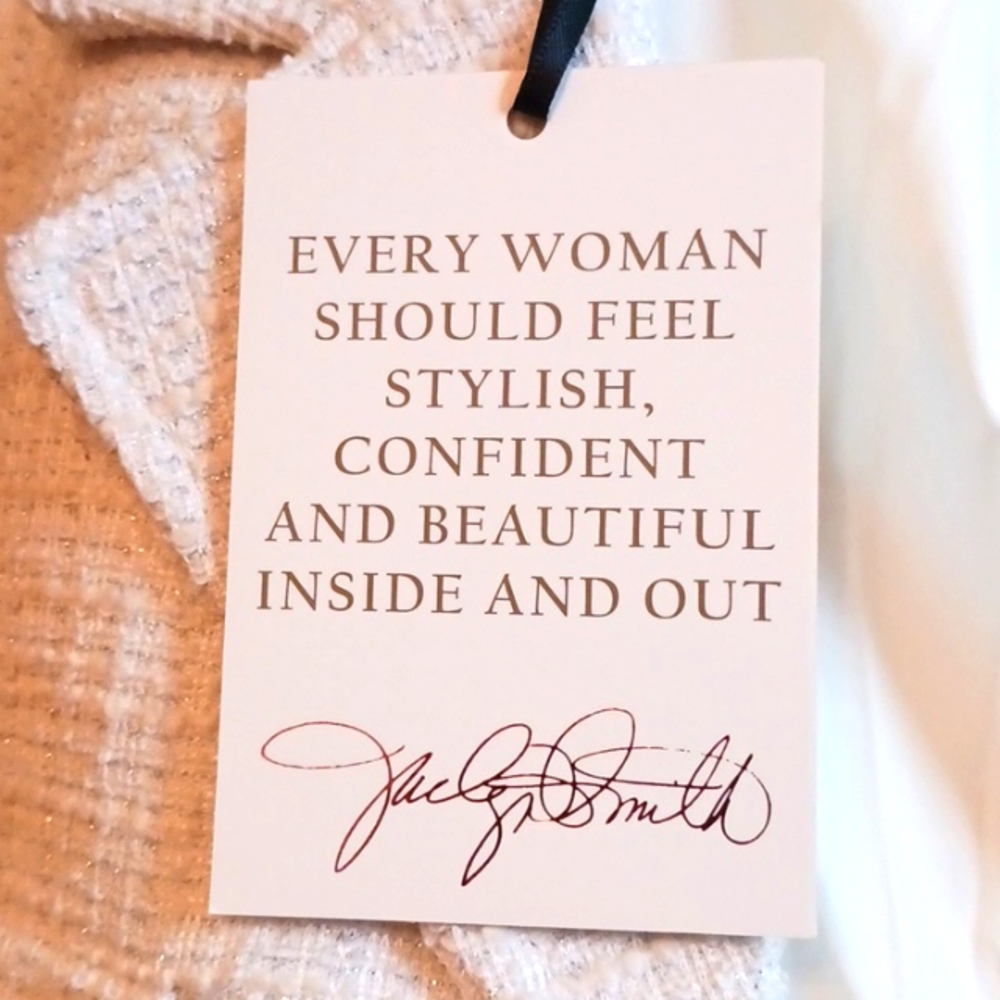 EVERY WOMAN
SHOULD FEEL
STYLISH,
CONFIDENT
AND BEAUTIFUL
INSIDE AND OUT
Jaclyn Smith